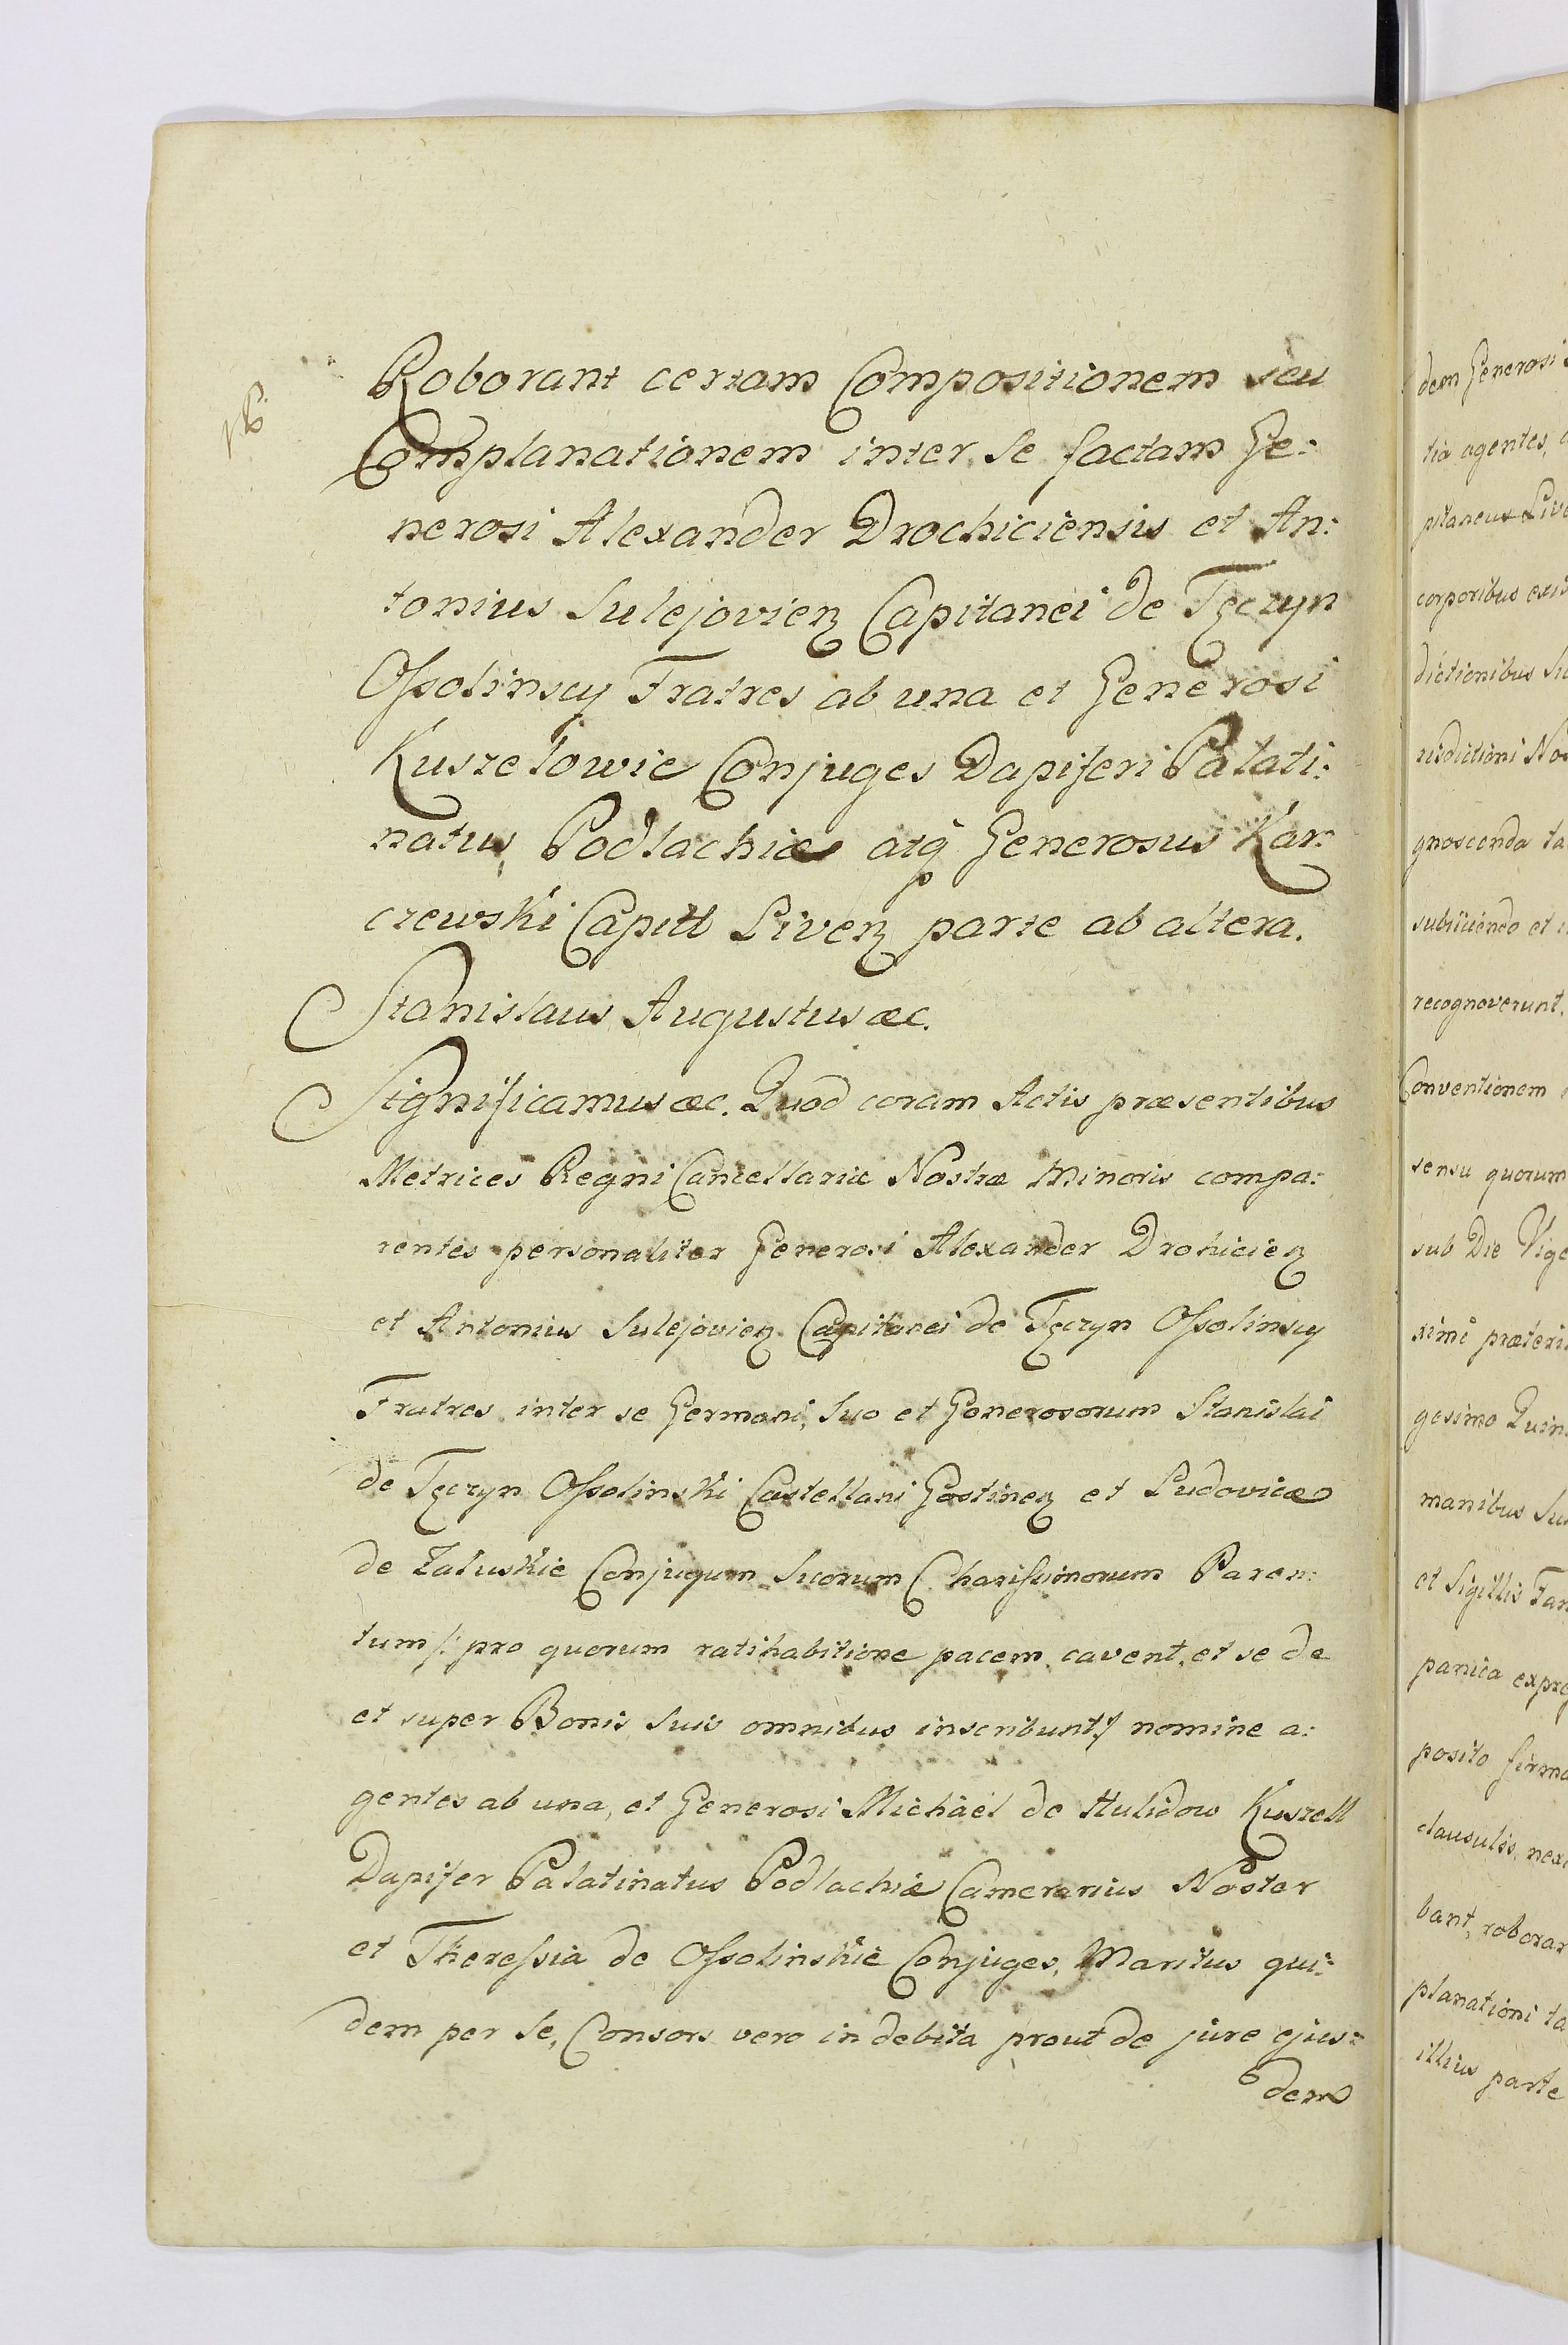 Roborant certam Compositionem seu
Complanationem inter se factam Ge:
nerosi Alexander Drochiciensis et An:
tonius Sulejovien Capitanei de Tęczyn
Ossolinscy Fratres ab una et Generosi
Kuszełowie Conjuges Dapiferi Palati:
natus Podlachiæ atq Generosus Kar:
czewski Capitt Liven parte ab altera.
Stanislaus Augustus æc.
Significamus æc. Quod coram Actis præsentibus
Metrices Regni Cancellariæ Nostræ Minoris compa:
rentes personaliter Generosi Alexander Drohicien
et Antonius Sulejovien Capitanei de Tęczyn Ossolinscy
Fratres inter se Germani, Suo et Generosorum Stanislai
de Tęczyn Ossolinski Castellani Gostinen et Ludovicæ
de Załuskie Conjugum Suorum Charissimorum Paren:
tum /: pro quorum ratihabitione pacem cavent, et se de
et super Bonis Suis omnibus inscribunt :/ nomine a:
gentes ab una, et Generosi Michael de Hulidow Kuszell
Dapifer Palatinatus Podlachiæ Camerarius Noster
et Theressia de Ossolinskie Conjuges, Maritus qui:
dem per Se, Consors vero in debita prout de jure ejus:
dem
dem Generosi
tia agentes,
pitaneus Live
corporibus
dictionibus
risdictioni
gnoscenda
et
recognoverunt.
Conventionem
sensu quorum
sub Die Vige
ximi præteri
gesimo Quin
manibus Su
et Sigillis
panica
posito firma
clausulis, nex
bant, roborar
planationi ta
illius parte